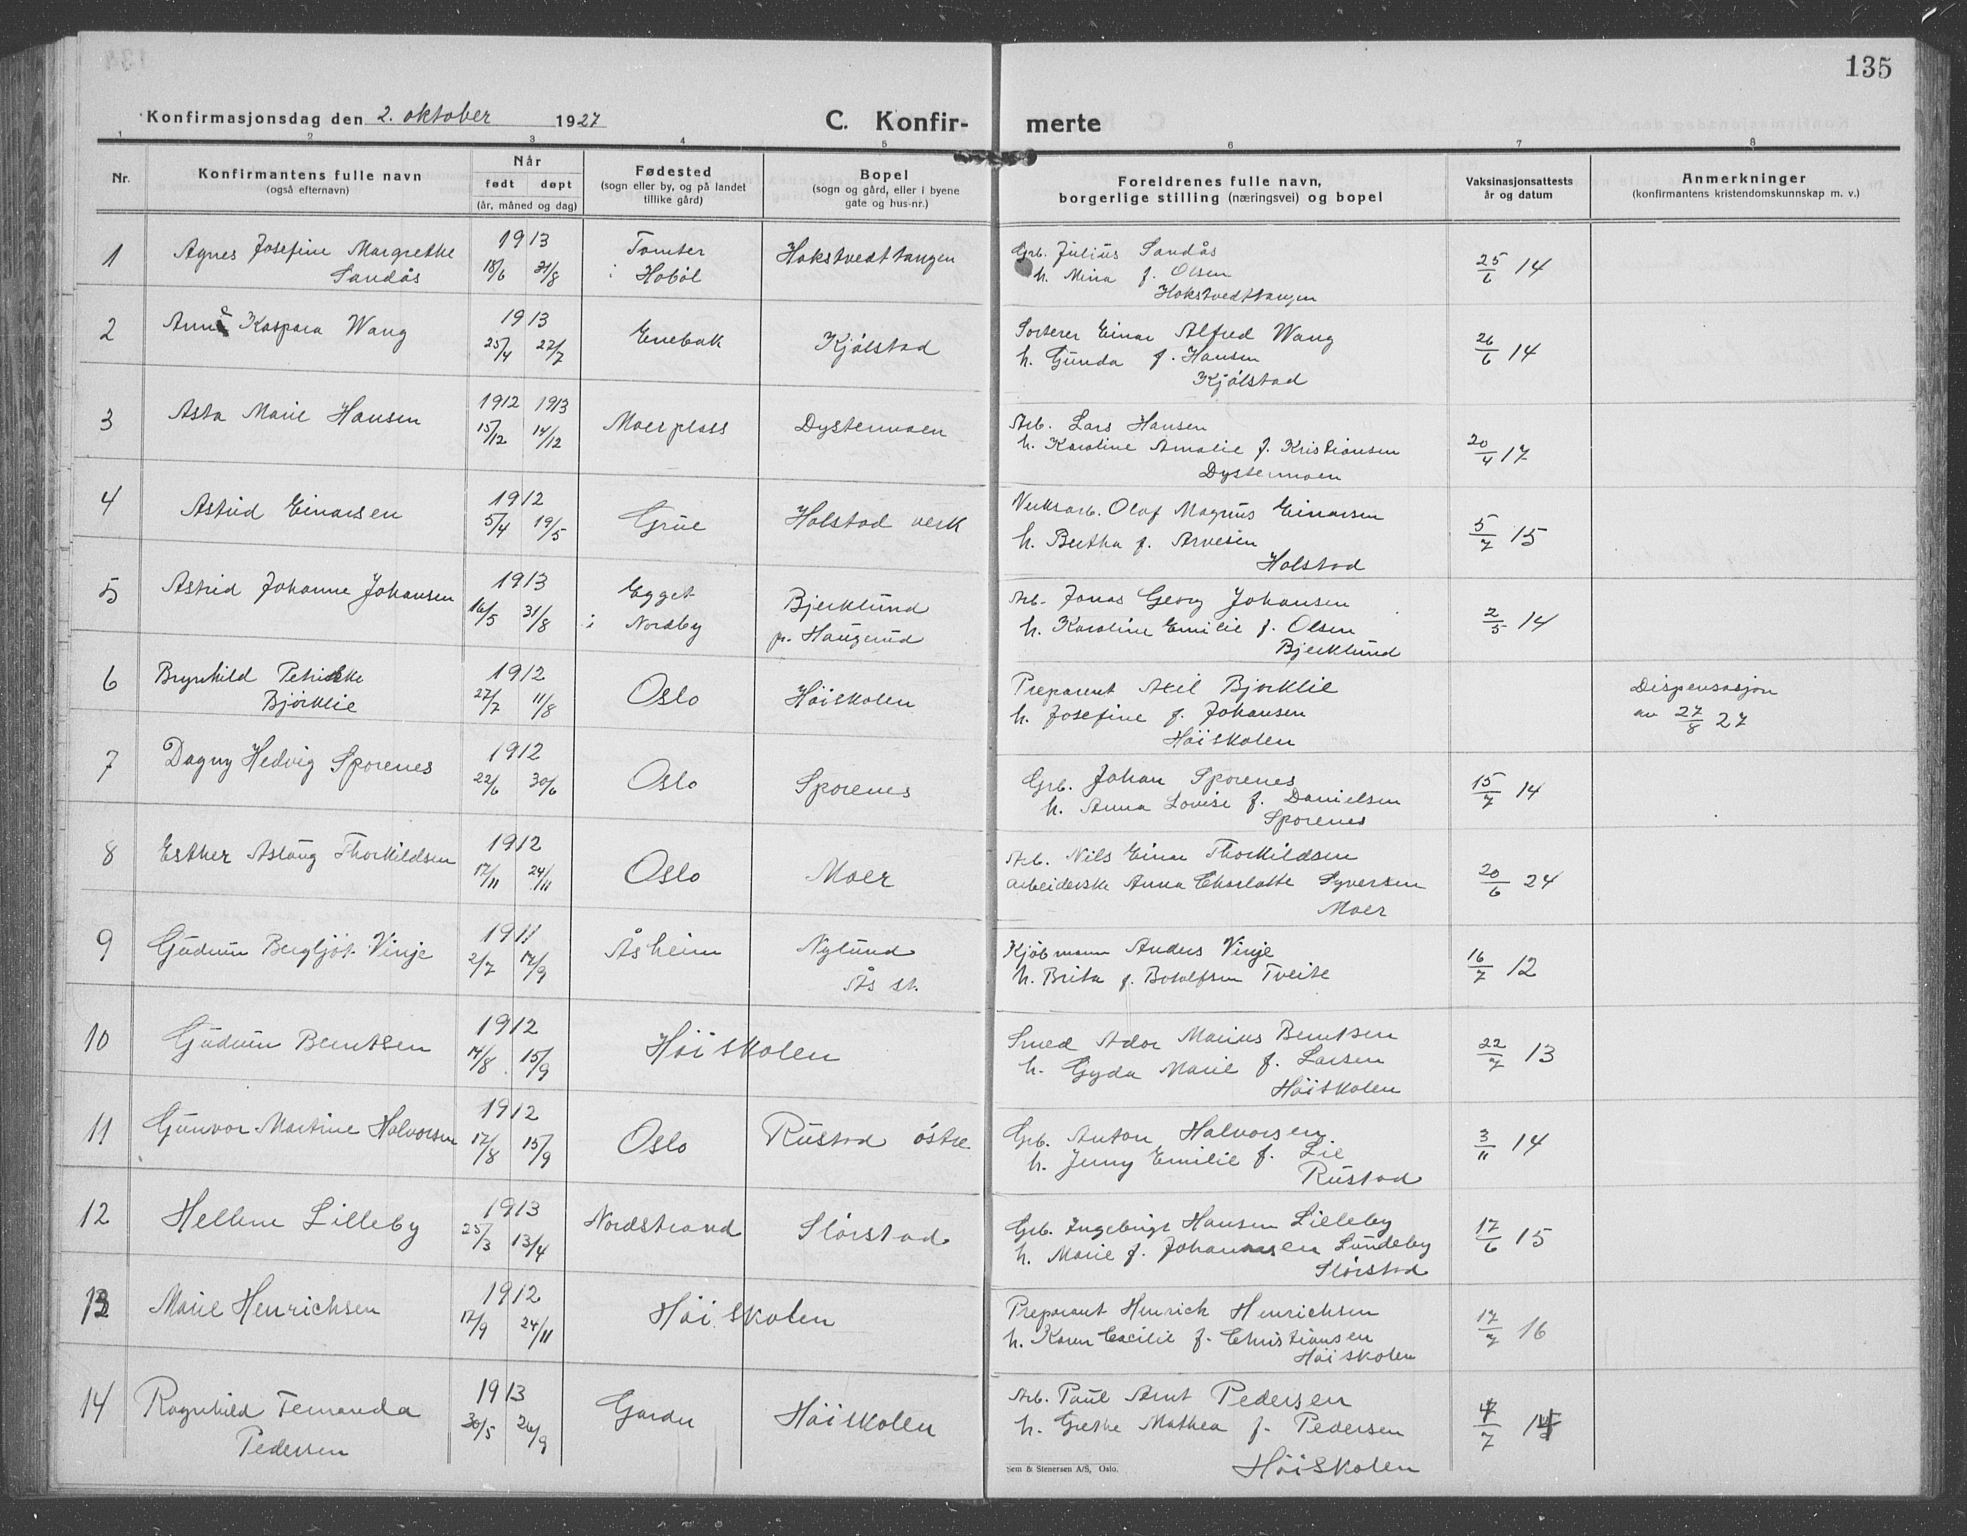 135
Konfirmasjonsdag den 2. oktober 1927 C. Konfir- merte
1 2 3 4 5 6 7 8
Nr. Konfirmantens fulle navn (også efternavn) Når født døpt (år, måned og dag) Fødested (sogn eller by, og på landet tillike gård) Bopel (sogn og gård, eller i byene gate og hus-nr.) Foreldrenes fulle navn, borgerlige stilling (næringsvei) og bopel Vaksinasjonsattests år og datum Anmerkninger (konfirmantens kristendomskunnskap m. v.)
1 Agnes Josefine Margrethe Sandås 1913 18/6 31/8 Tomter i Hobøl Hokstvedttangen Grb. Julius Sandås h. Mina f. Olsen Hokstvedttangen 25/6 14
2 Anne Kaspara Wang 1913 25/4 27/7 Enebak Kjølstad Sorterer Einar Alfred Wang h. Gunda f. Hansen Kjølstad 26/6 14
3 Asta Marie Hansen 1912 1913 15/12 14/12 Moer plass Dystermoen Arb. Lars Hansen h. Karoline Amalie f. Kristiansen Dystermoen 20/4 17
4 Astrid Einarsen 1912 5/4 19/5 Grue Holstad verk Verksarb. Olaf Magnus Einarsen h. Bertha f. Arvesen Holstad 5/7 15
5 Astrid Johanne Johansen 1913 16/5 31/8 Egget i Nordby Bjerklund pr. Haugerud Arb. Jonas Georg Johansen h. Karoline Emilie f. Olsen Bjerklund 2/5 14
6 Brynhild Petrikke Bjørklie 1912 27/7 11/8 Oslo Høiskolen Preparant Axel Bjørklie h. Josefine f. Johansen Høiskolen Dispensasjon av 27/8 27
7 Dagny Hedvig Sporenes 1912 22/6 30/6 Oslo Sporenes Grb. Johan Sporenes h. Anna Lovise f. Danielsen Sporenes 15/7 14
8 Esther Aslaug Thorkildsen 1912 17/11 24/11 Oslo Moer Arb. Nils Einar Thorkildsen arbeiderske Anna Charlotte Syversen Moer 20/6 24
9 Gudrun Bergljot Vinje 1911 2/7 17/9 Åsheim Nylund Ås st. Kjøbmann Anders Vinje h. Brita f. Botolfsen Tveite 16/7 12
10 Gudrun Berntsen 1912 14/8 15/9 Høiskolen Smed Ador Marius Berntsen h. Gyda Marie f. Larsen Høiskolen 22/7 13
11 Gunvor Martine Halvorsen 1912 17/8 15/9 Oslo Rustad østre Grb. Anton Halvorsen h. Jenny Emilie f. Lie Rustad 3/11 14
12 Hellene Lilleby 1913 25/3 13/4 Nordstrand Slørstad Grb. Ingebrigt Hansen Lilleby h. Marie f. Johannesen Lundeby Slørstad 17/6 15
13 Marie Henrichsen 1912 17/9 24/11 Høiskolen Preparant Henrich Henrichsen h. Karen Cecilie f. Christiansen Høiskolen 17/7 16
14 Ragnhild Fernanda Pedersen 1913 30/5 26/9 Garder Høiskolen Arb. Paul Arnt Pedersen h. Grethe Mathea f. Pedersen Høiskolen
Sem & Stenersen A/S, Oslo.